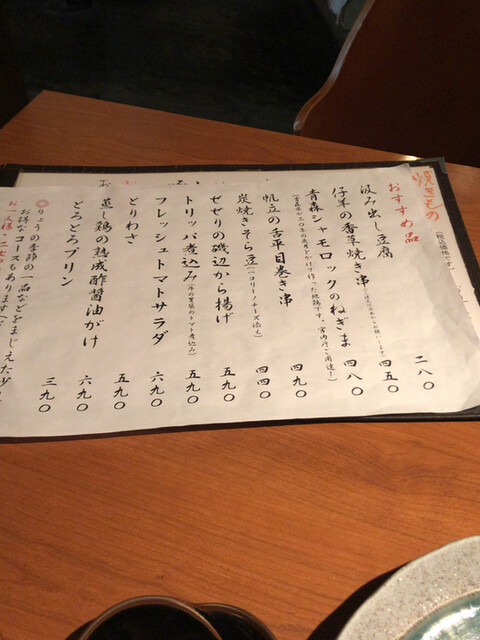 焼きもの
(税込価格です)
おすすめ品
汲み出し豆腐 二八〇
仔羊の香草焼き串 四五〇
青森シャモロックのねぎま 四八〇
帆立の舌平目巻き串 四九〇
炭焼きそら豆(ペコリーノチーズ添え) 四四〇
せせりの磯辺から揚げ 五九〇
トリッパ煮込み(牛の胃袋のトマト煮込み) 五九〇
フレッシュトマトサラダ 六九〇
とりわさ 五九〇
蒸し鶏の熟成酢醤油がけ 六九〇
とろとろプリン 三九〇
りょうの季節の一品などをまじえた少し
お得なコースもあります
お一人様